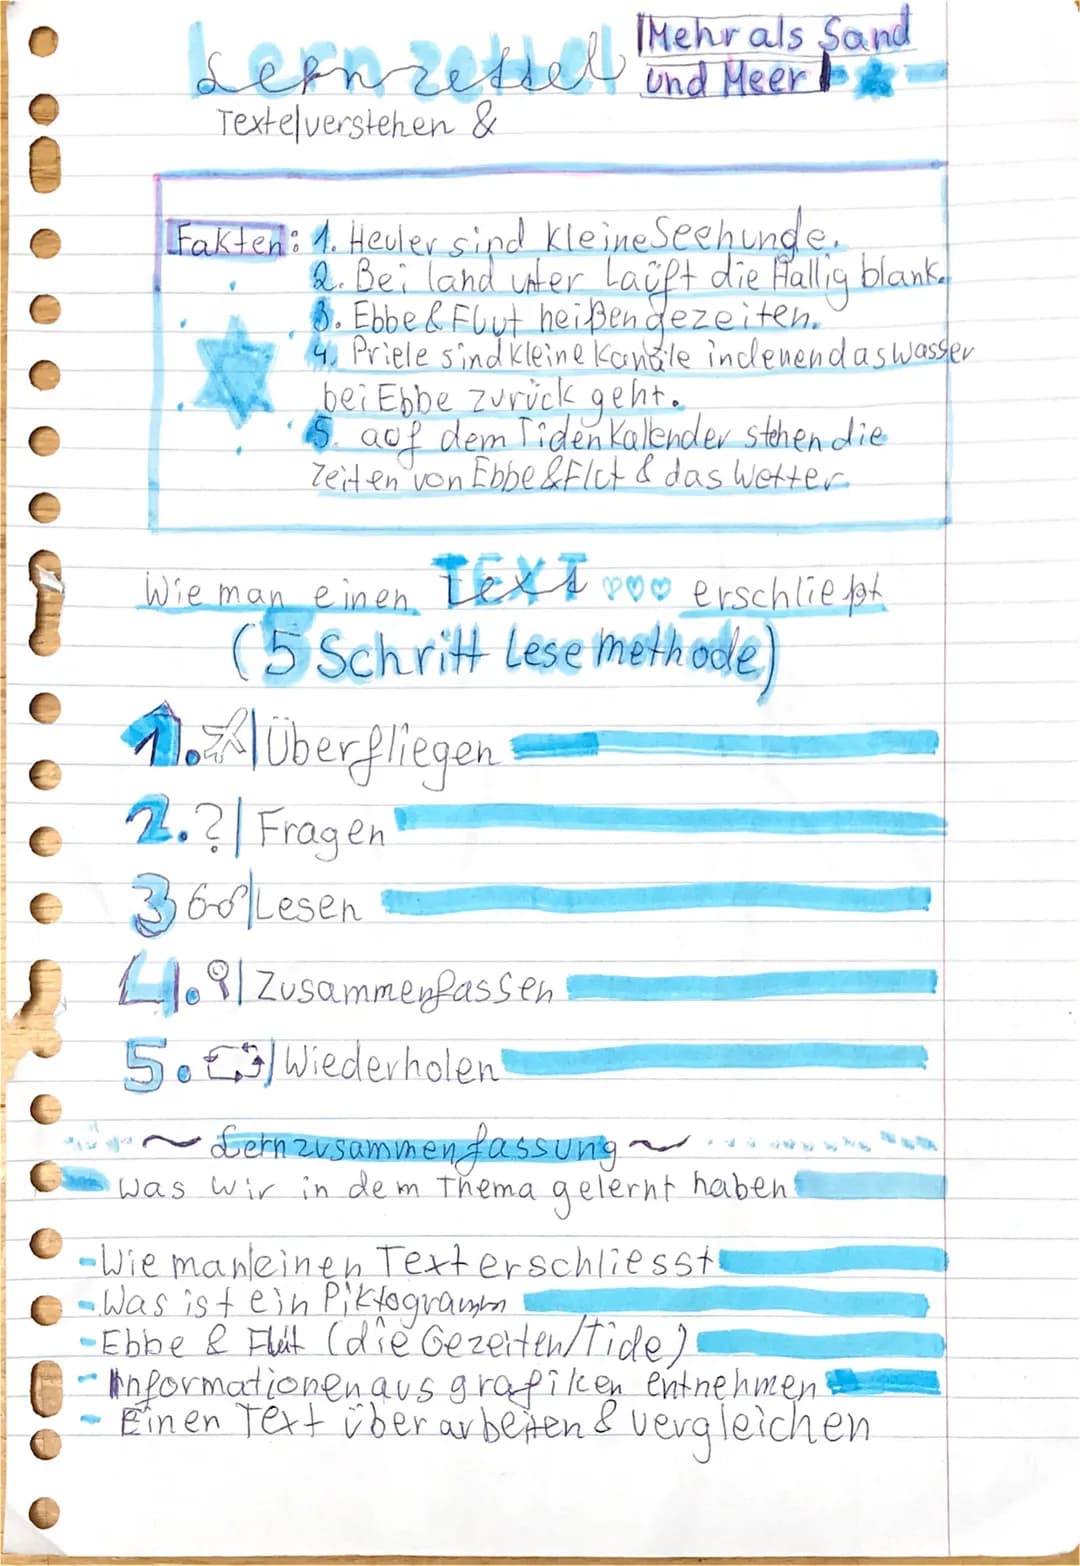 Lernzettel
Mehr als Sand
und Meer
Texte verstehen &
Fakten: 1. Heuler sind kleine Seehunde.
2. Bei land unter Läuft die Hallig blank.
3. Ebbe & Flut heißen gezeiten.
4. Priele sind kleine Kanäle in denen das wasser
bei Ebbe zurück geht.
5. auf dem Tidenkalender stehen die
Zeiten von Ebbe & Flut & das Wetter
Wie man einen TEXT erschließt
(5 Schritt Lesemethode)
1. | Überfliegen
2. ? | Fragen
3 | Lesen
4. | Zusammenfassen
5. | Wiederholen
~ Lernzusammenfassung ~
Was wir in dem Thema gelernt haben
- Wie man einen Text erschliesst
- Was ist ein Piktogramm
- Ebbe & Flut (die Gezeiten/Tide)
- Informationen aus grafiken entnehmen
- Einen Text überarbeiten & vergleichen